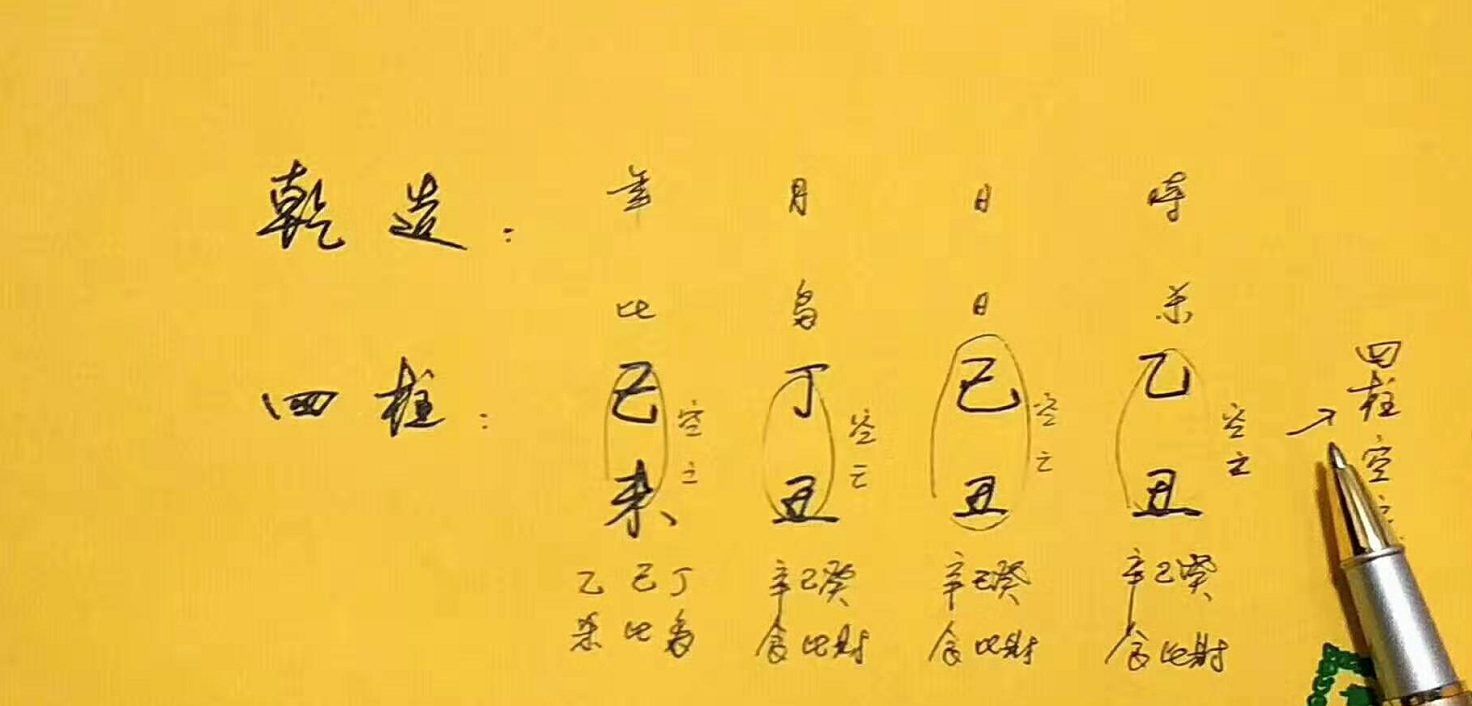 乾造： 年 月 日 时
比 枭 日 杀
四柱： 己 丁 己 乙
空亡 空亡 空亡 空亡
未 丑 丑 丑
乙己丁 辛己癸 辛己癸 辛己癸
杀比枭 食比财 食比财 食比财
四柱空